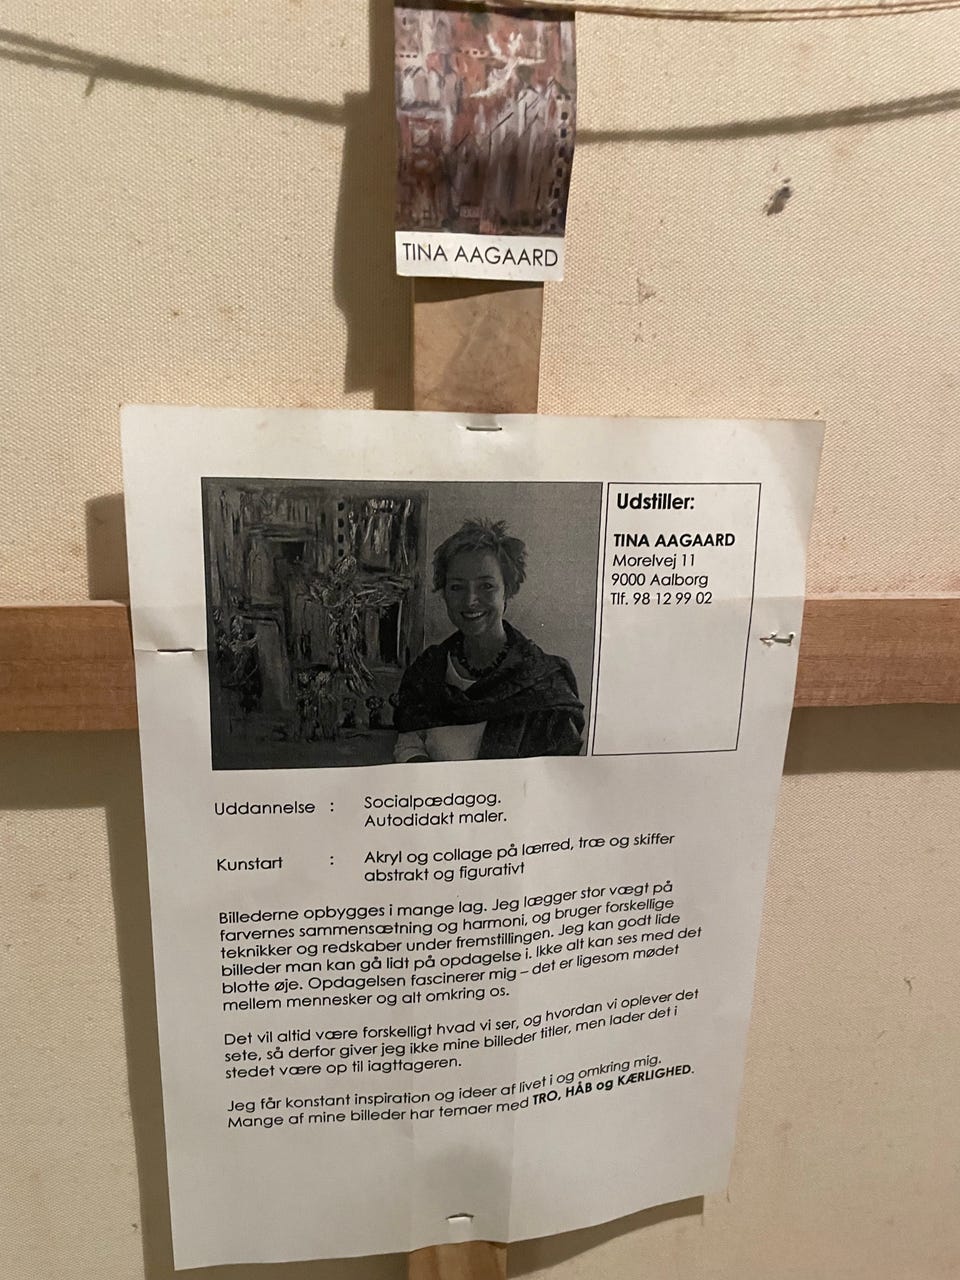 TINA AAGAARD
Udstiller:
TINA AAGAARD
Morelvej 11
9000 Aalborg
Tlf. 98 12 99 02
Uddannelse : Socialpædagog.
Autodidakt maler.
Kunstart : Akryl og collage på lærred, træ og skiffer
abstrakt og figurativt
Billederne opbygges i mange lag. Jeg lægger stor vægt på
farvernes sammensætning og harmoni, og bruger forskellige
teknikker og redskaber under fremstillingen. Jeg kan godt lide
billeder man kan gå lidt på opdagelse i. Ikke alt kan ses med det
blotte øje. Opdagelsen fascinerer mig – det er ligesom mødet
mellem mennesker og alt omkring os.
Det vil altid være forskelligt hvad vi ser, og hvordan vi oplever det
sete, så derfor giver jeg ikke mine billeder titler, men lader det i
stedet være op til iagttageren.
Jeg får konstant inspiration og ideer af livet i og omkring mig.
Mange af mine billeder har temaer med TRO, HÅB og KÆRLIGHED.